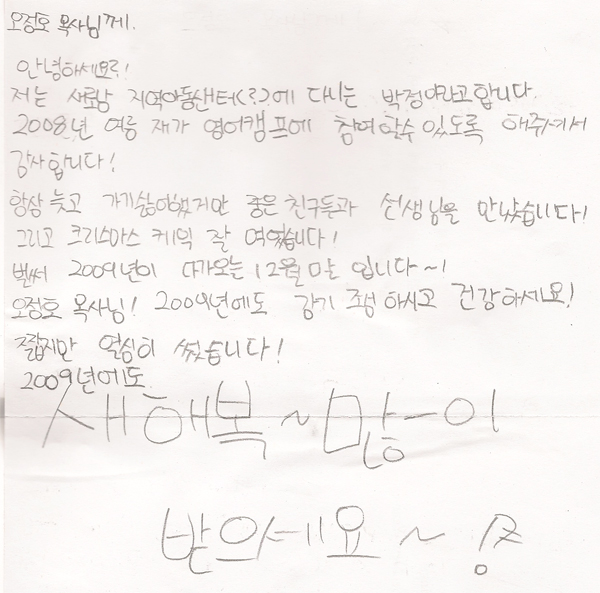 오정호 목사님께.
안녕하세요?!
저는 새로남 지역아동샌터(?)에 다니는 박정아라고합니다.
2008년 여름 제가 영어캠프에 참여할수있도록 해주셔서
감사합니다!
항상 늦고 가기싫어했지만 좋은 친구들과 선생님을 만났습니다!
그리고 크리스마스 케익 잘 먹었습니다!
벌써 2009년이 다가오는 12월 마은 입니다~!
오정호 목사님! 2009년에도 감기 조심 하시고 건강하세요!
짧지만 열심히 썼습니다!
2009년에도
새해복~많~이
받으세요~!